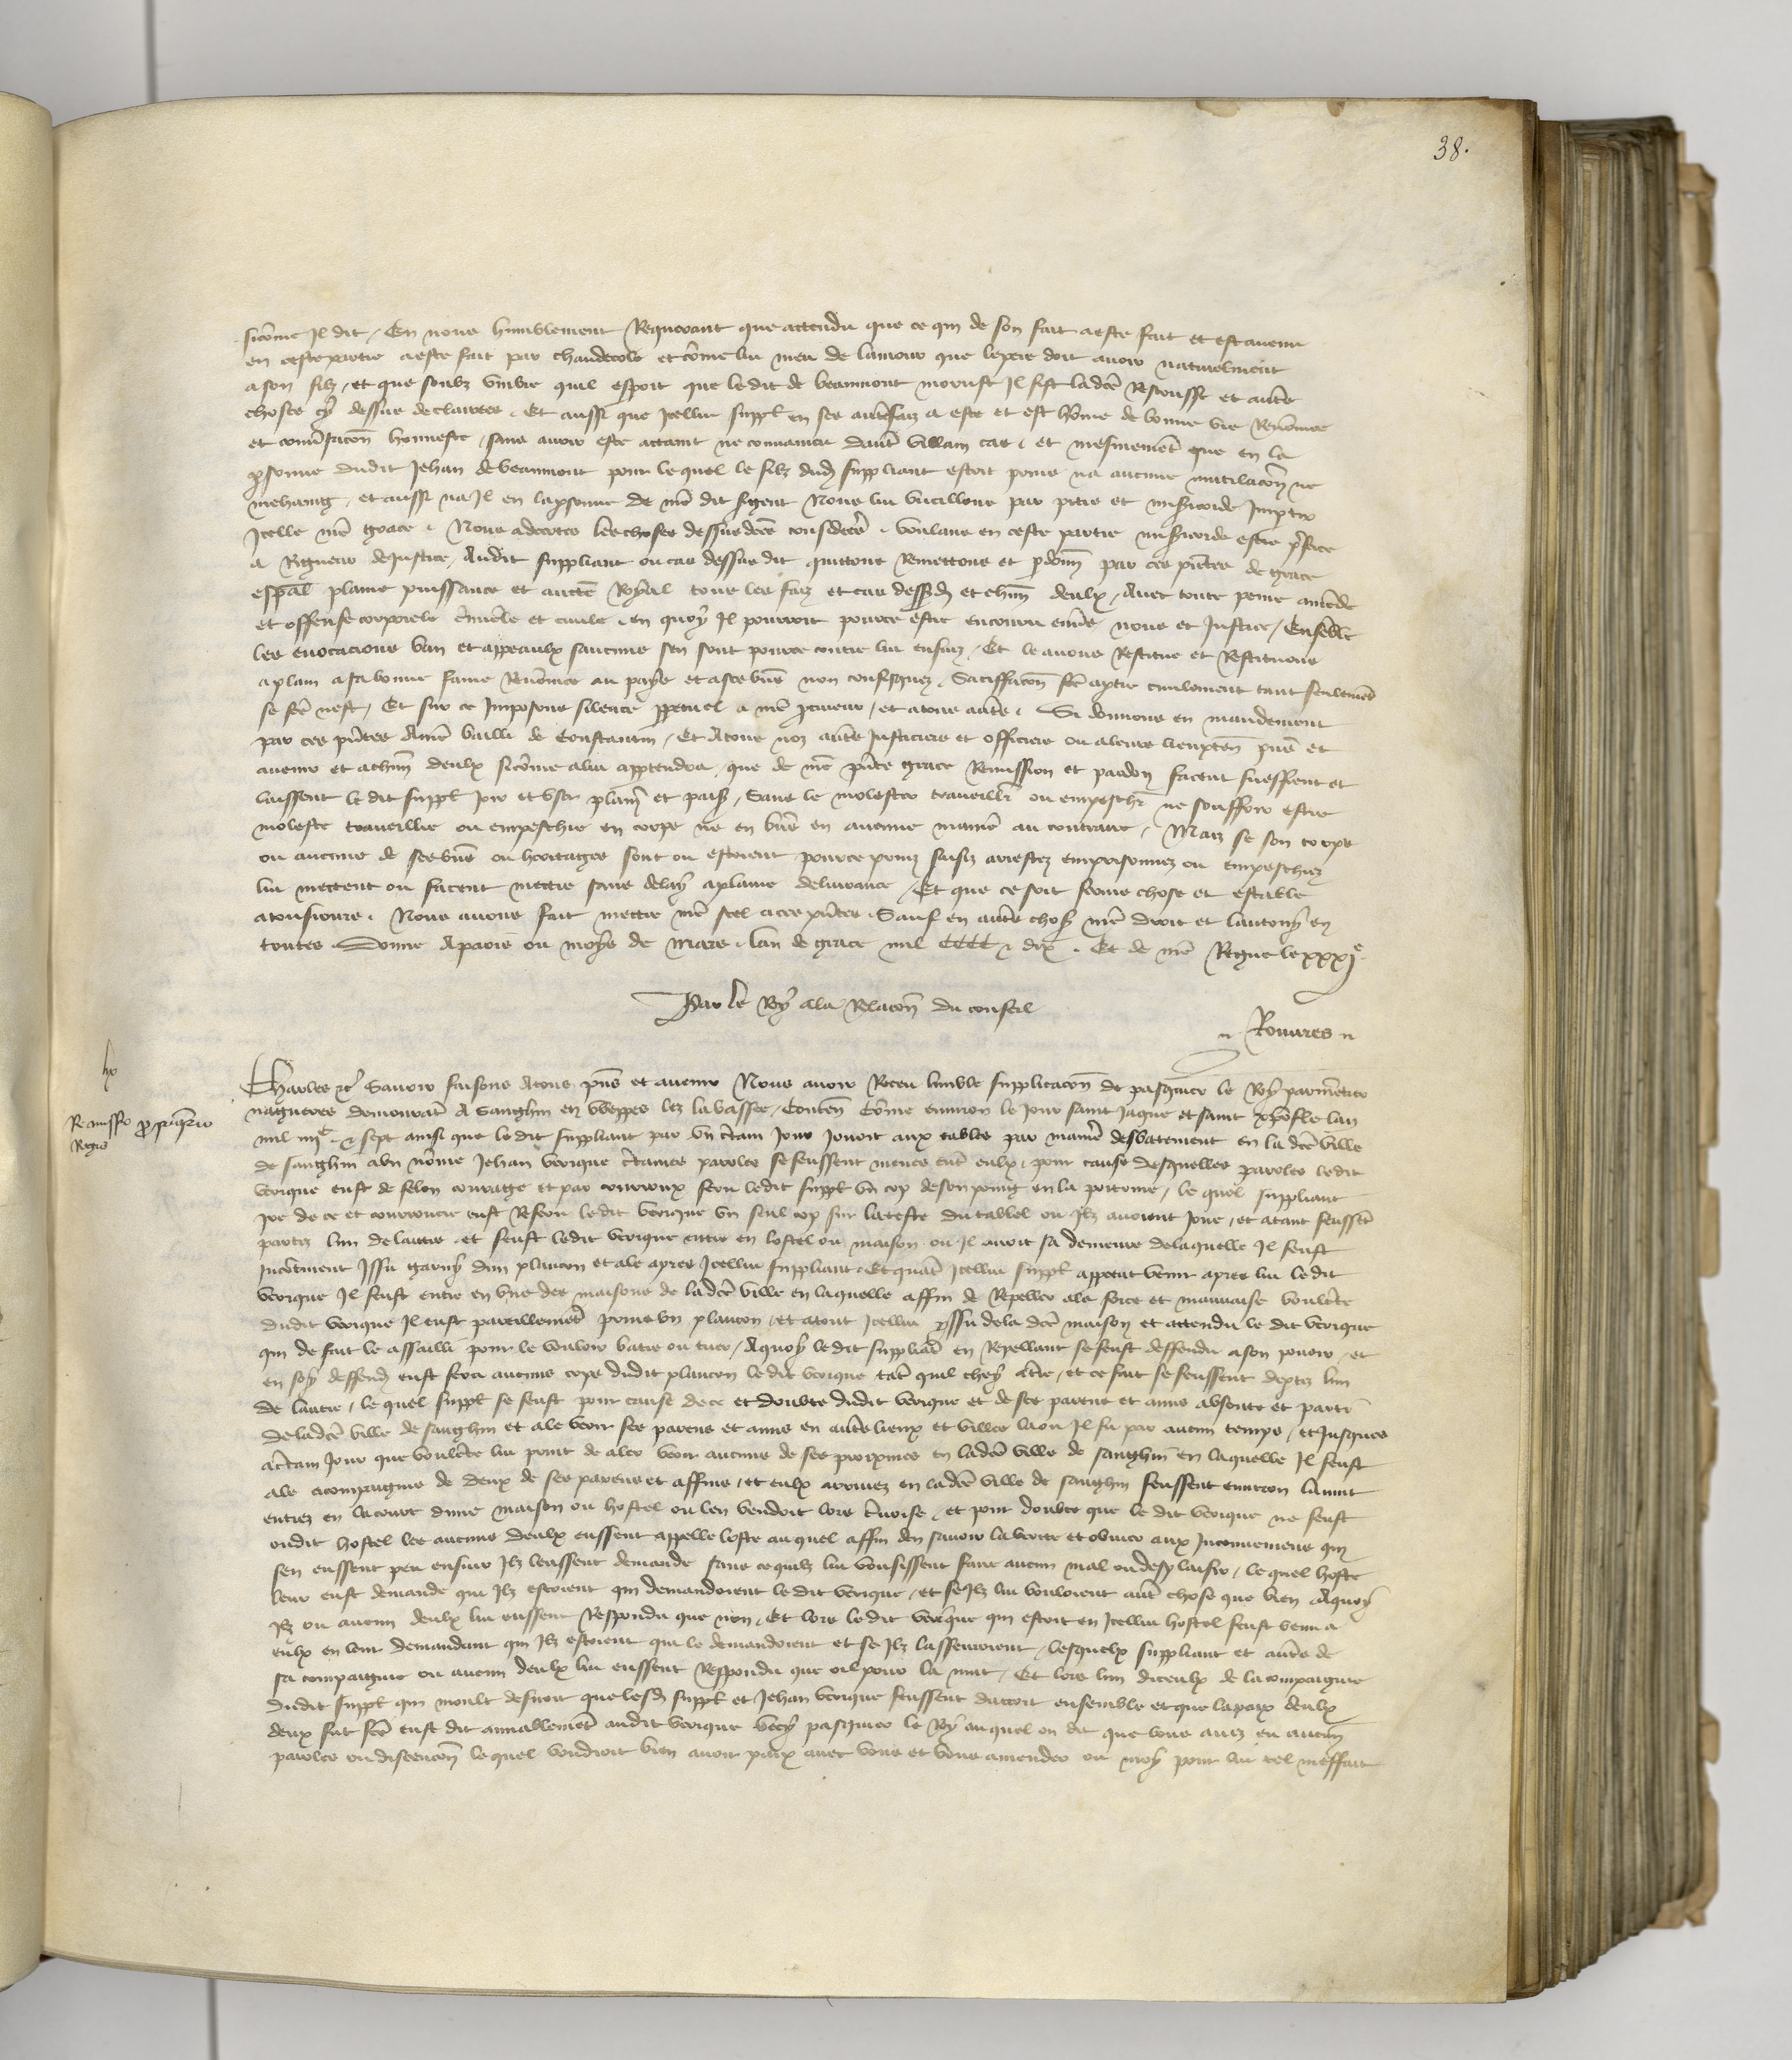 38.
sicōme Il dit / En nous humblement Requerant que attendu que ce qui de son fait a este fait et est auenu
en ceste partie a este fait par chaudecole et cōme lui meu de lamour que le pere doit auoir naturelmēt
a son filz / et que soubz vmbre quil espoit que le dit de beaumont morust Il fist lad̄ce Rescousse et aut̄es
choses cy dessus declairees . Et aussi que Icellui suppl̄ en ses aut̄es faiz a este et est hōme de bonne vie Renōmee
et conūsacōn honneste / sans auoir este attaint ne conuaincu daut̄ villain cas . et mesmemēt que en la
ꝑsonne dudit Jehan de beaumont pour lequel le filz dud̄ suppliant estoit prins na aucune mutilacōn ne
mehaing / et aussi na Il en la ꝑsonne de nr̄e dit sergent Nous lui vueillons par pitie et misericorde Impartir
Icelle nr̄e grace . Nous adecertes les choses dessusd̄ces considerēs . voulans en ceste partie misericorde estre p̄feree
a Rigueur de justice / Audit suppliant ou cas dessusdit quittons Remettons et ꝑdonn̄s par ces pn̄tes de grace
esp̄al plaine puissance et aucte Royal tous les faiz et cas dessusd̄ et chūn deulx / Auec toute peine amēde
et offense corporele c̄minele et ciuile . en quoy Il pourroit pource estre encouru enūs nous et Justice / Ensēble
les euocacions ban et appeaulx saucuns sen sont pource contre lui ensuiz / Et le auons Restitue et Restituons
a plain a sa bonne fame Renōmee au pays et a ses biēs non confisquez . Satisfacōn fc̄e a ptie ciuilement tant seulemēt
se fc̄e nest / Et sur ce Imposons silence ꝑpetuel a nr̄e ꝓcureur / et a tous aut̄es . Si donnons en mandement
par ces pn̄tes A nr̄e bailli de Constantin / Et A tous noz aut̄es Justiciers et officiers ou a leurs lieuxten̄ pn̄s et
auenir et a chūn deulx sicōme a lui apptendra / que de nr̄e pn̄te grace Remission et pardon facent sueffrent et
laissent le dit suppl̄ joir et vser plain̄emt et paisib̄ / Sans le molester trauellr̄ ou empeschr̄ ne souffrir estre
moleste traueillie ou empeschie en corps ne en biēs en aucune maniē au contraire / Mais se son corps
ou aucuns de ses biēs ou heritages sont ou estoient pource prins saisiz arrestez emprisonnez ou empeschiez
lui mettent ou facent mettre sans delay a plaine deliurance / Et que ce soit ferme chose et estable
a tousiours . Nous auons fait mettre nr̄e seel a ces pn̄tes . Sauf en aut̄es chos̄ nr̄e droit et lautruy en
toutes . Donne A paris ou moys de Mars . lan de grace mil CCCC . dix . Et de nr̄e Regne le xxxjᵉ
Par le Roy a la Relacōn du conseil
Rouures
Remissio ꝓ pasq̄rio
Regis
Charles &c̄ Sauoir faisons A tous pn̄s et auenir Nous auoir Receu lumble supplicacōn de pasquier le Roy parmētier
nagueres demourāt A Sanghin en Weppes lez la bassee / Conten̄ Cōme enuiron le Jour saint Jaque et saint xp̄ofle lan
mil iiijᶜ . & sept ainsi que le dit suppliant par vn c̄tain Jour Jouoit aux tables par maniē desbatement en la dc̄e ville
de sanghin a vn nōme Jehan verique c̄taines paroles se feussent meues ent̄ eulx . pour cause desquelles paroles ledit
verique eust de felon courage et par courroux feru ledit suppl̄ vn cop de son poing en la poitrine / le quel suppliant
Ire de ce et courroucie eust Referu le dit verique vn seul cop sur la teste du tablel ou Ilz auoient joue / et atant feussēt
partiz lun de lautre . et feust ledit verique entre en lostel ou maison ou Il auoit sa demeure de laquelle Il feust
Incōtinent Issu garny dun plancon et ale apres Icellui suppliant . Et quāt Icellui suppl̄ apperceut venir apres lui le dit
verique Il feust entre en vne des maisons de la dc̄e ville en laquelle affin de Repeller a la force et mauuaise voulēte
dudit verique Il eust pareillemēt prins vn plancon / et a tout Icellui yssu de la dc̄e maison et attendu le dit verique
qui de fait le assailli pour le vouloir batre ou tuer / A quoy le dit suppliāt en Repellant se feust deffendu a son pouoir / et
en soy deffend̄ eust feru aucuns cops dudit plancon le dit verique tāt quil chey a t̄re / et ce fait se feussent deptiz lun
de lautre / le quel suppl̄ se feust pour cause de ce et doubte dudit verique et de ses parens et amis absente et parti
de ladc̄e ville de sanghin et ale veoir ses parens et amis en aut̄es lieux et villes la ou Il fu par aucun temps / et Jusques
a c̄tain Jour que voulēte lui print de aler veoir aucuns de ses proixmes en ladc̄e ville de sanghin en laquelle Il feust
ale acompaigne de deux de ses parens et affins / et eulx arriuez en ladc̄e ville de sanghin feussent enuiron lanuit
entrez en la court dune maison ou hostel ou len vendoit lors c̄uoise / et pour doubte que le dit verique ne feust
oudit hostel les aucuns deulx eussent appelle loste au quel affin den sauoir la verite et obuier aux Inconueniens qui
sen eussent peu ensuir Ilz leussent demande sans ce quilz lui voulsissent faire aucun mal ou desplaisir / le quel hoste
leur eust demande qui Ilz estoient qui demandoient le dit verique / et se Ilz lui vouloient aut̄ chose que bien A quoy
Ilz ou aucun deulx lui eussent Respondu que non . Et lors le dit verique qui estoit en Icellui hostel feust venu a
eulx en leur demandant qui Ilz estoient qui le demandoient et se Ilz lasseuroient / lesquelx suppliant et aut̄es de
sa compaignie ou aucun deulx lui eussent Respondu que oil pour la nuit / Et lors lun diceulx de la compaignie
dudit suppl̄ qui moult desiroit que lesd̄ suppl̄ et Jehan verique feussent daccort ensemble et que la paix deulx
deux fut fc̄e eust dit amiablemēt audit verique vecy pasquier le Roy auquel on dit que vous auez eu aucun̄s
paroles ou disencōn le quel vendroit bien auoir paix auec vous et vous amender ou moy pour lui tel meffait